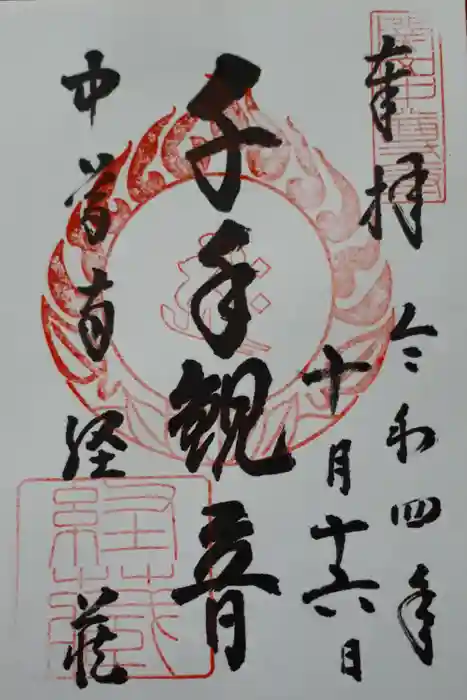 奉拝
令和四年
十月十六日
千手観音
中尊寺経蔵
經藏